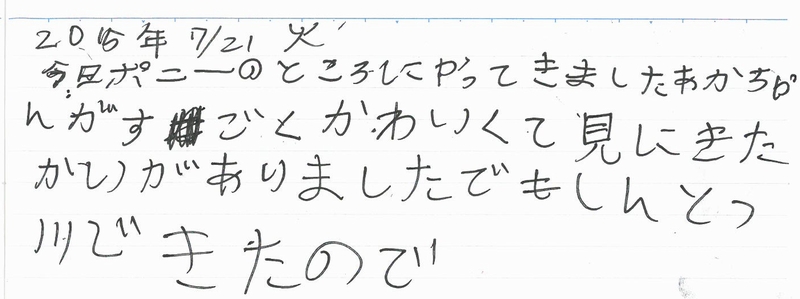 2015年 7/21 火
今日ポニーのところにやってきましたあかちゃ
んがす ごくかわいくて見にきた
かいがありましたでもしんどっ
川できたので